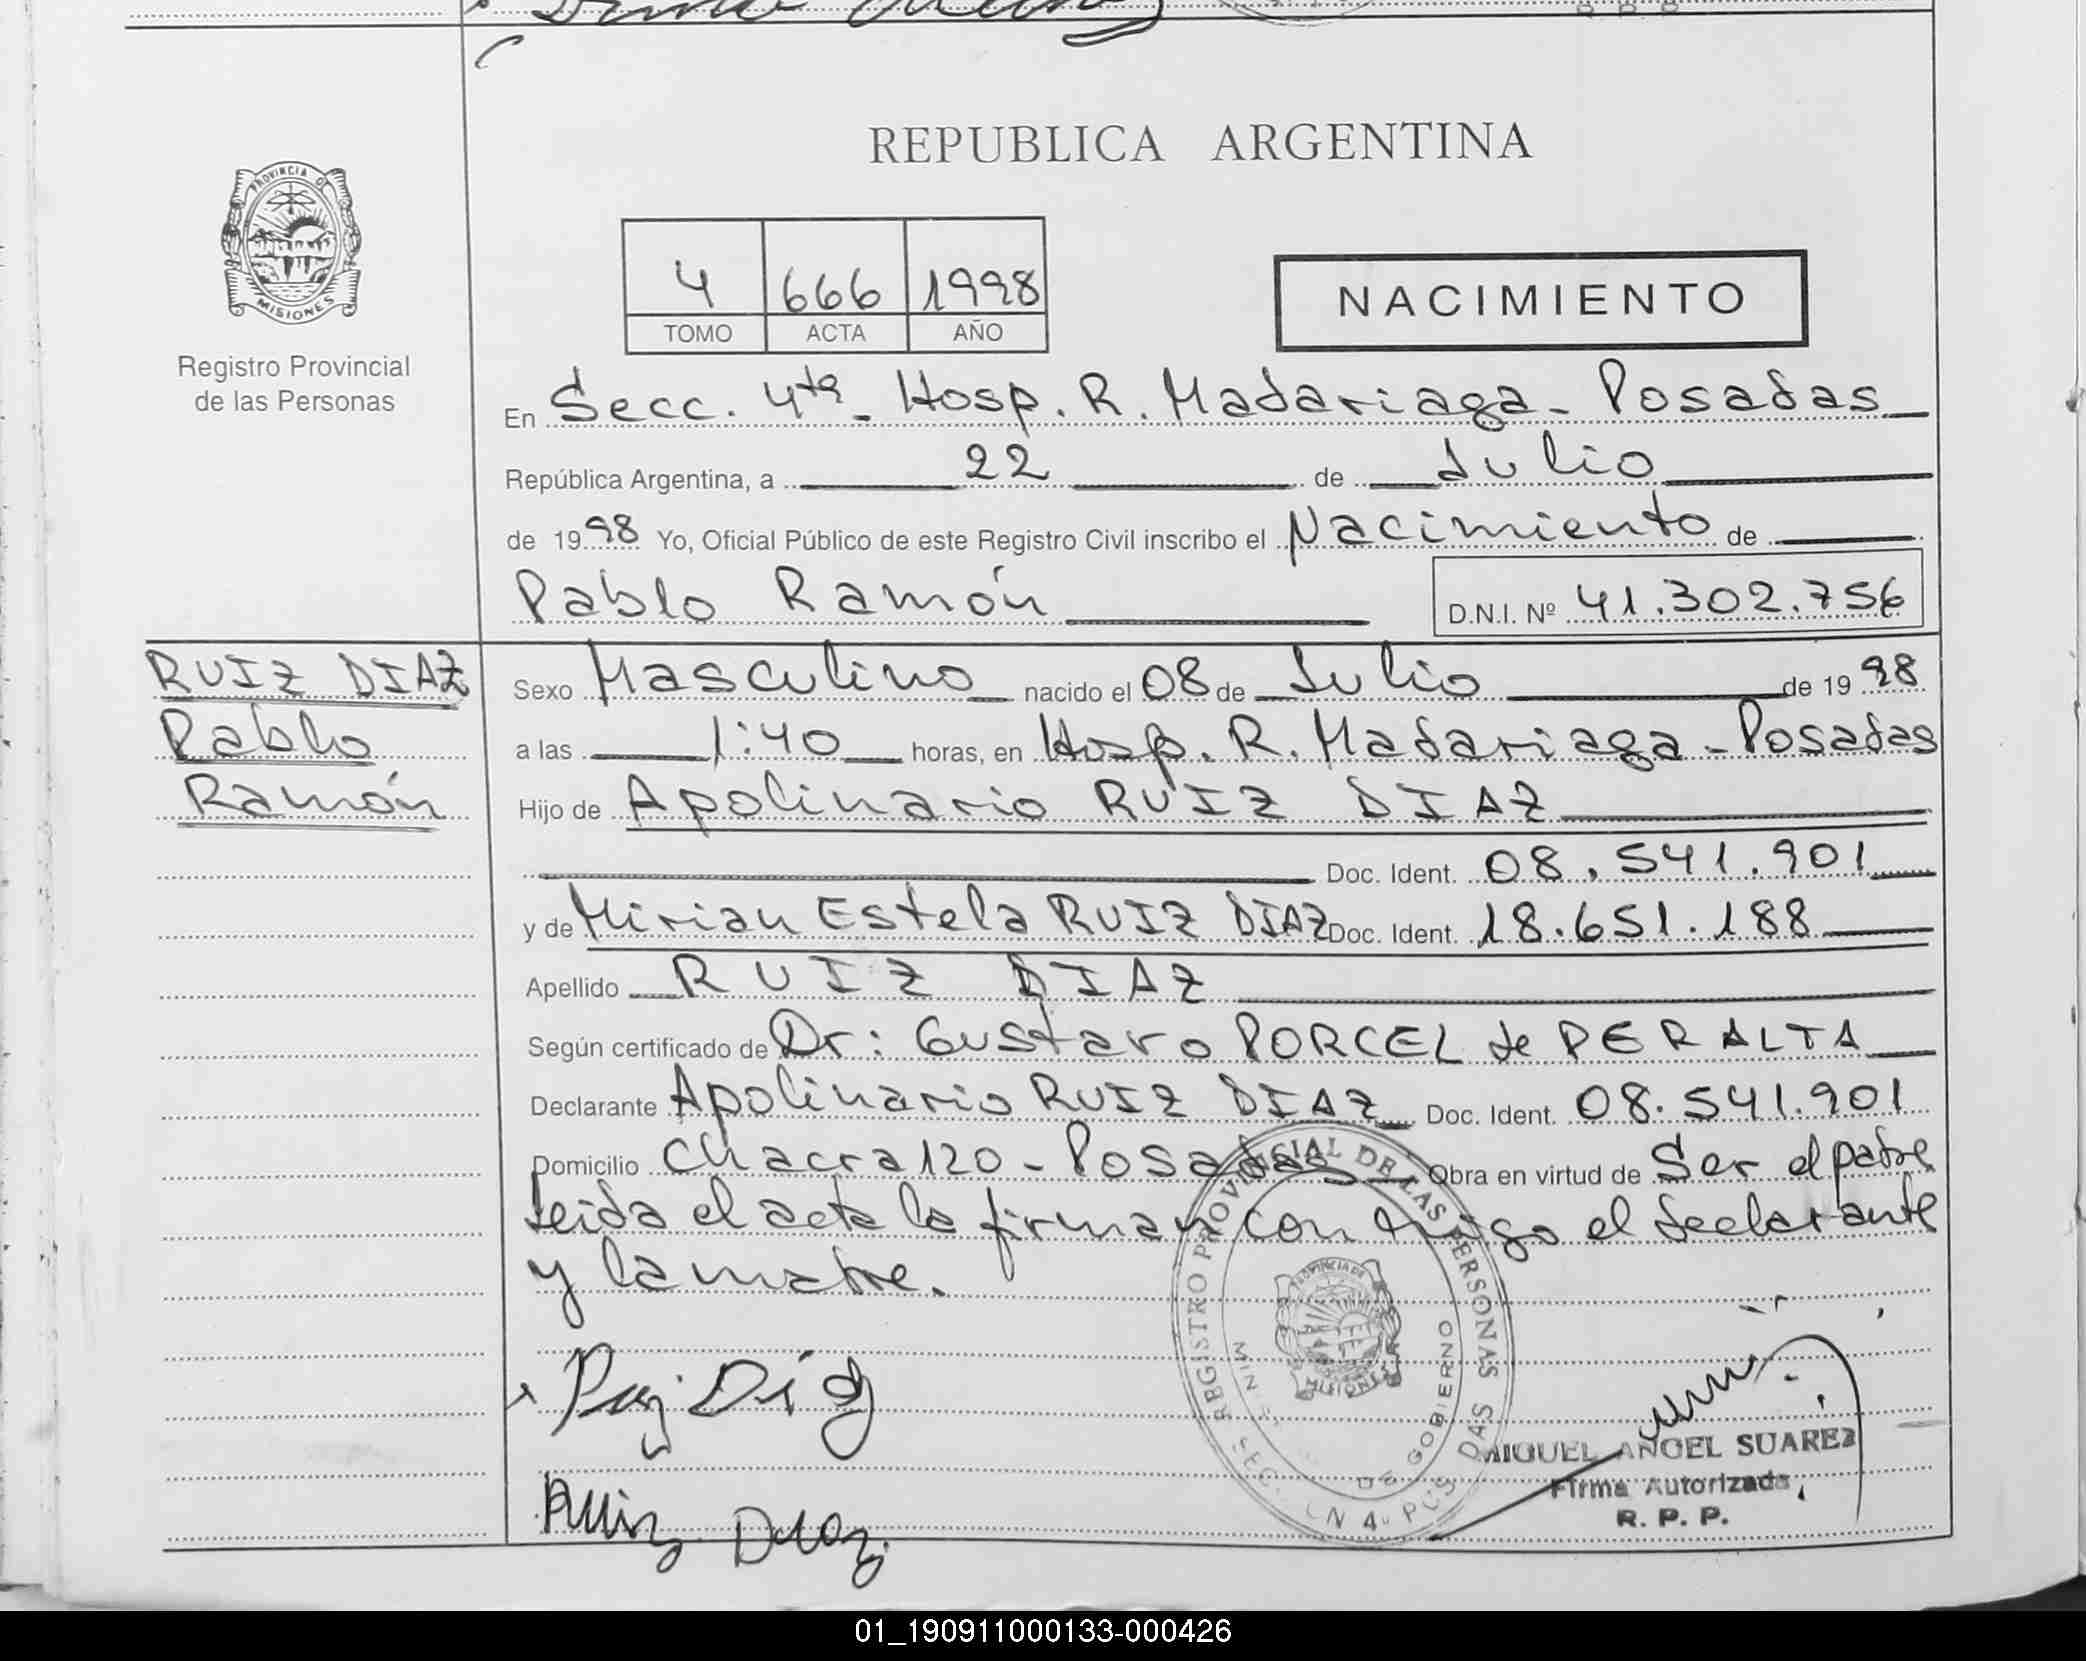 REPUBLICA ARGENTINA
PROVINCIA D
MISIONES
Registro Provincial
de las Personas
4 666 1998
TOMO ACTA AÑO
NACIMIENTO
En Secc. 4ta - Hosp. R. Madariaga - Posadas
República Argentina, a 22 de Julio
de 1998 Yo, Oficial Público de este Registro Civil inscribo el Nacimiento de
Pablo Ramón D.N.I. Nº 41.302.756
RUIZ DIAZ
Pablo
Ramón
Sexo Masculino nacido el 08 de Julio de 1998
a las 1:40 horas, en Hosp. R. Madariaga - Posadas
Hijo de Apolinario RUIZ DIAZ
Doc. Ident. 08.541.901
y de Mirian Estela RUIZ DIAZ Doc. Ident. 18.651.188
Apellido RUIZ DIAZ
Según certificado de Dr: Gustavo PORCEL de PERALTA
Declarante Apolinario RUIZ DIAZ Doc. Ident. 08.541.901
Domicilio Chacra 120 - Posadas Obra en virtud de Ser el padre
Leida el acta la firman con migo el declarante
y la madre.
REGISTRO PROVINCIAL DE LAS PERSONAS
DE GOBIERNO
MISIONES
Ruiz Diaz
Ruiz Diaz
MIGUEL ANGEL SUAREZ
Firma Autorizada
R. P. P.
01_190911000133-000426